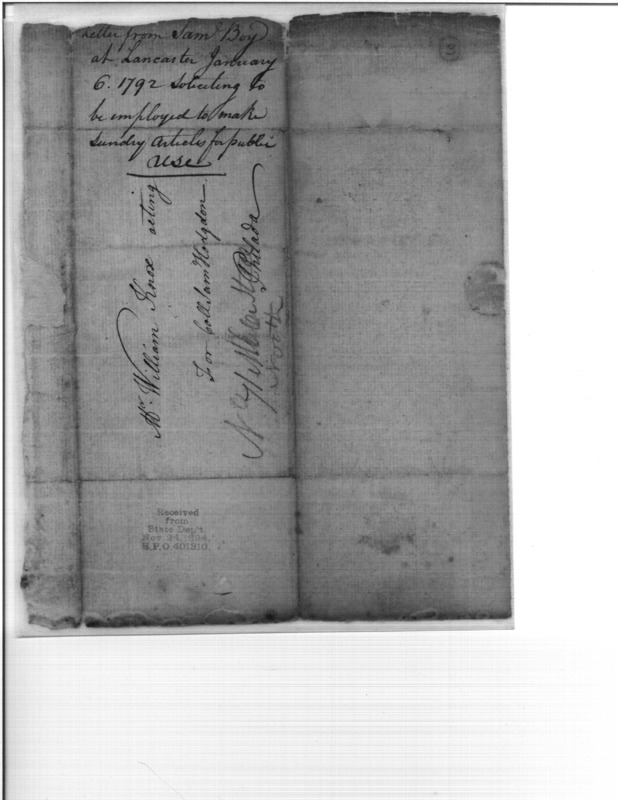 Letter from Saml Boyd
at Lancaster January
6. 1792 Soliciting to
be employed to make
Sundry Articles for public
use
Mr William Knox acting
For Coll. Sam Hodgdon.
Philada
Received
from
State Dep't.
Nov. 24, 1894.
R.P.O. 401910.